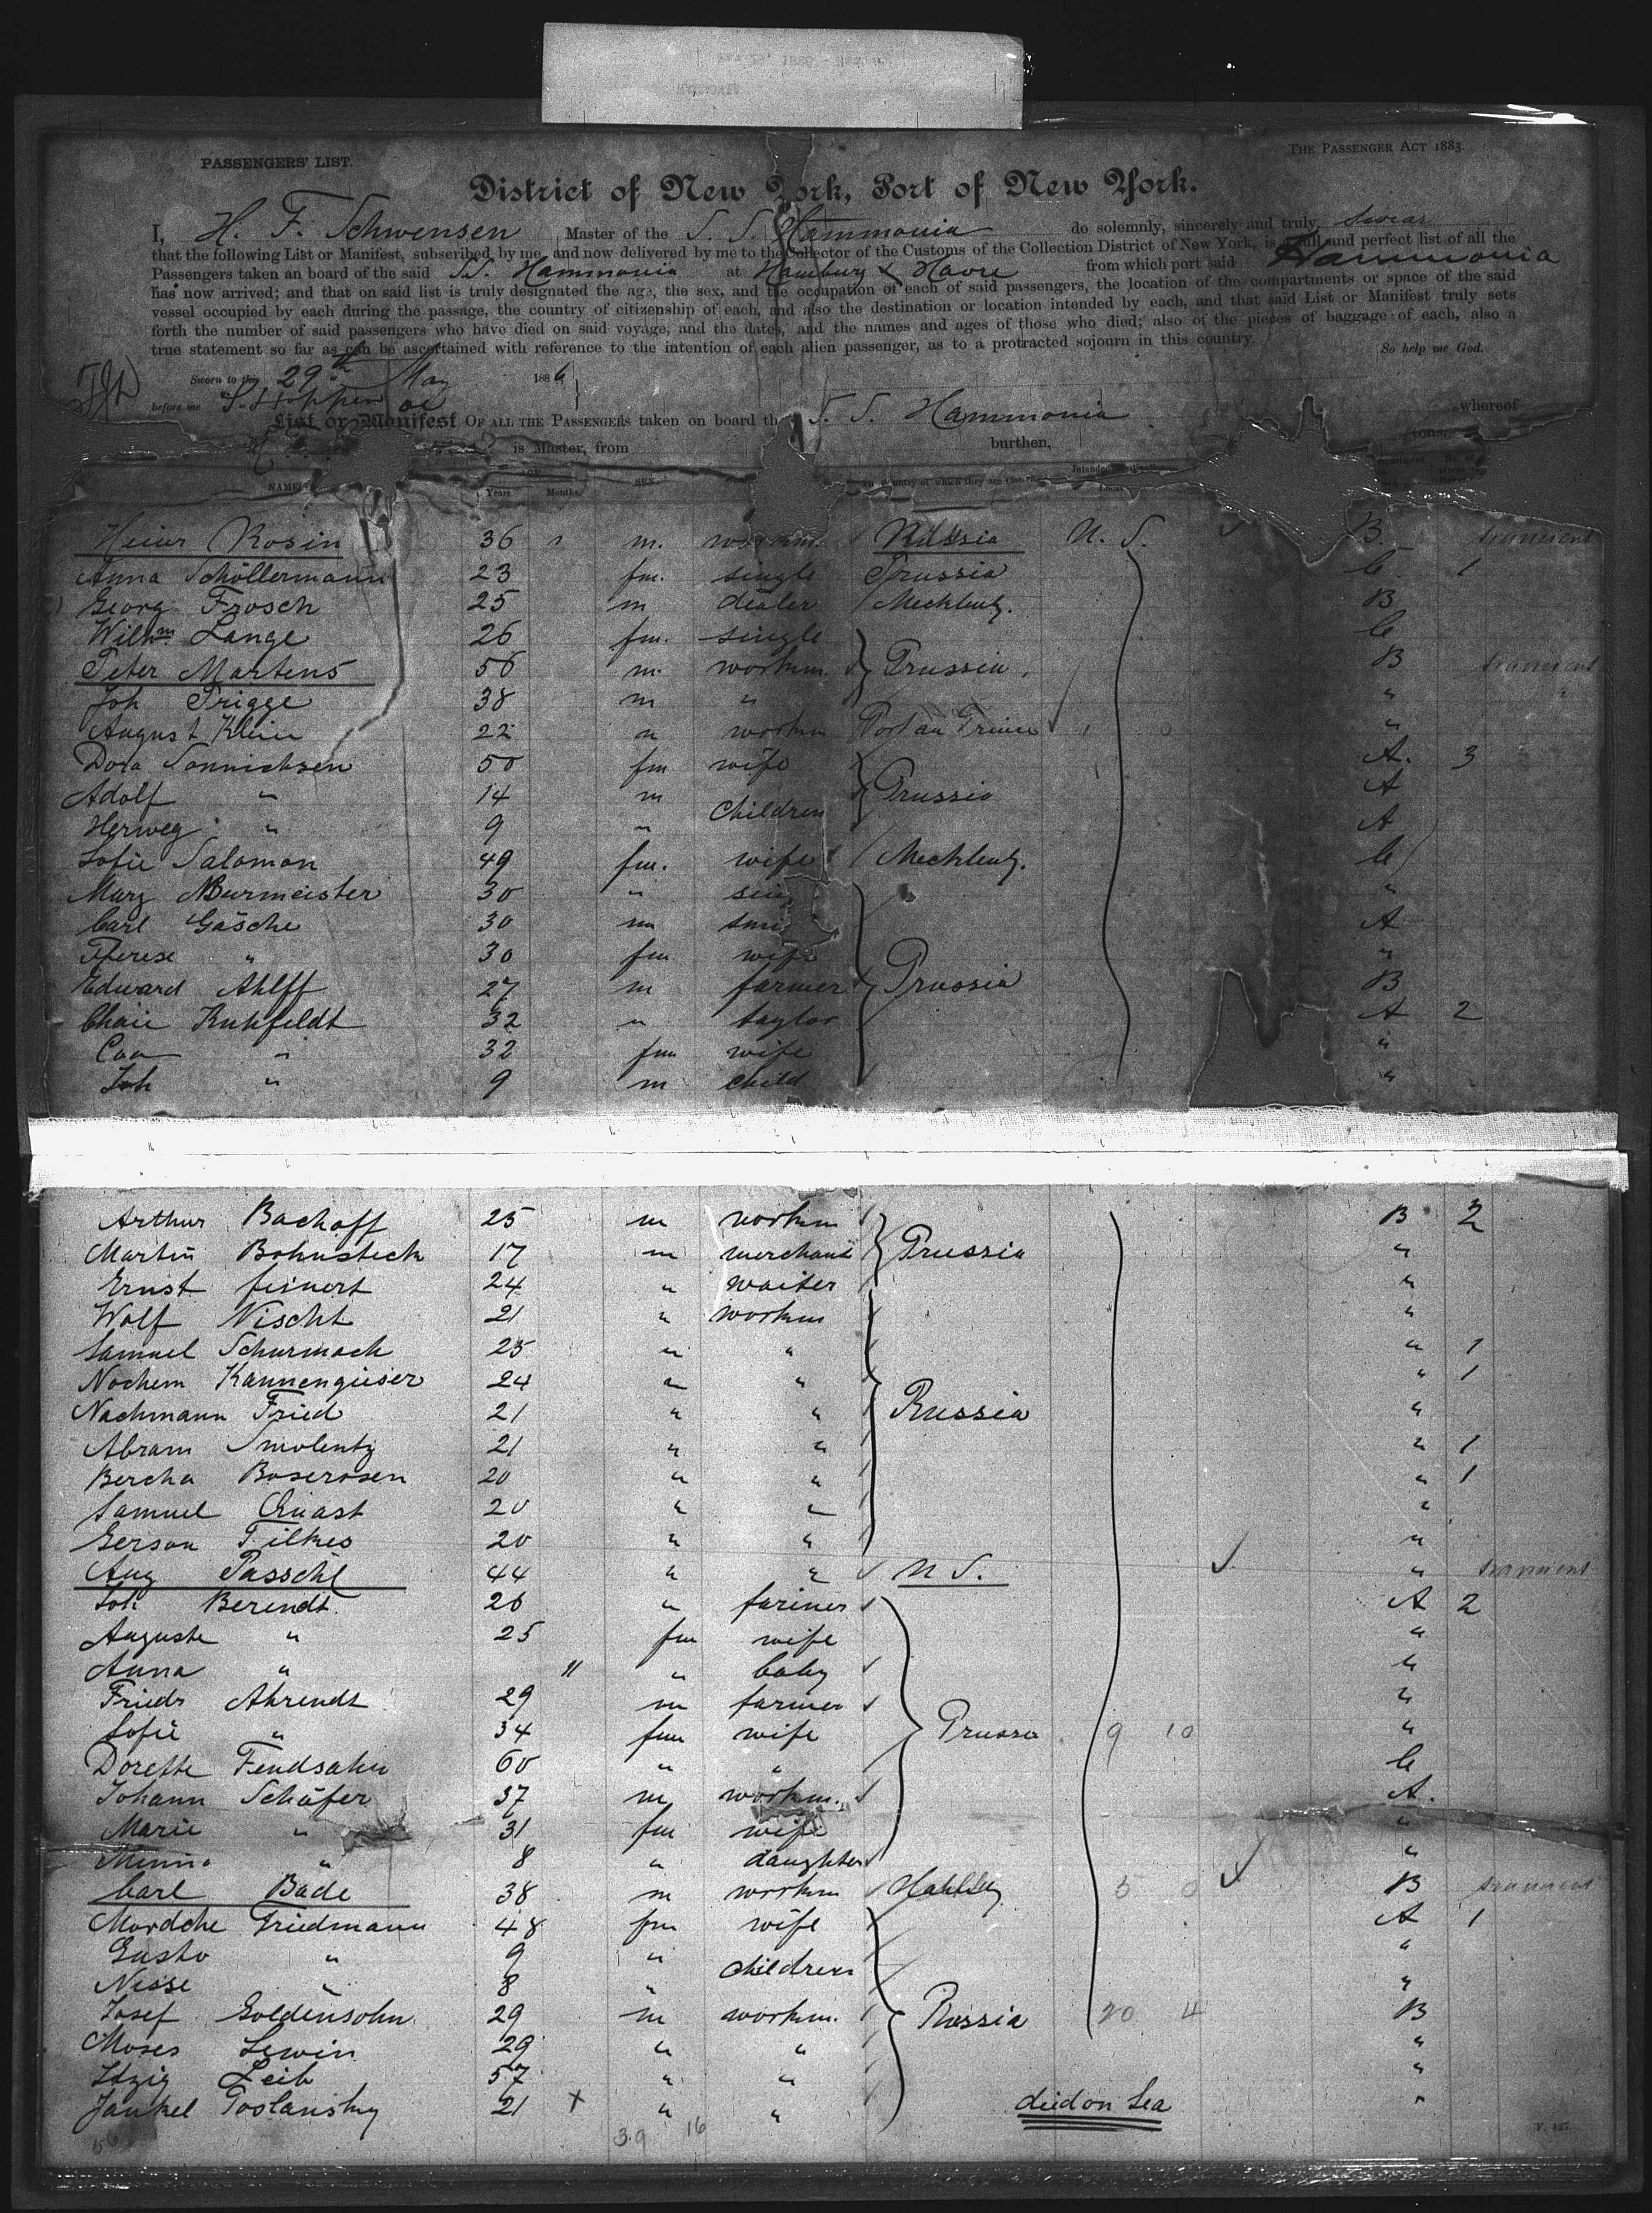 PASSENGERS' LIST.
THE PASSENGER ACT 1883.
District of New York, Port of New York.
I, H. F. Schwensen Master of the S. S. Hammonia do solemnly, sincerely and truly swear
that the following List or Manifest, subscribed by me, and now delivered by me to the Collector of the Customs of the Collection District of New York, is a full and perfect list of all the
Passengers taken on board of the said SS. Hammonia at Hamburg & Havre from which port said Hammonia
has now arrived; and that on said list is truly designated the age, the sex, and the occupation of each of said passengers, the location of the compartments or space of the said
vessel occupied by each during the passage, the country of citizenship of each, and also the destination or location intended by each, and that said List or Manifest truly sets
forth the number of said passengers who have died on said voyage, and the dates, and the names and ages of those who died; also of the pieces of baggage of each, also a
true statement so far as can be ascertained with reference to the intention of each alien passenger, as to a protracted sojourn in this country.
So help me God.
Sworn to this 29th May 1886
before me
List or Manifest OF ALL THE PASSENGERS taken on board the S. S. Hammonia whereof
is Master, from burthen, tons.
NAMES Years. Months. SEX.
Heinr Rosin 36 m. workm. Russia U. S. B. transient
Anna Schöllermann 23 fm. single Prussia C 1
Georg Frosch 25 m dealer Mecklenbg. B
Wilhm Lange 26 fm. single C
Peter Martens 56 m. workm. Prussia. B transient
Joh Prigge 38 m " " "
August Klein 22 " workm Port au Prince "
Dora Sonnichsen 50 fm wife A. 3
Adolf " 14 m Children Prussia A
Herweg " 9 " A
Sofie Salomon 49 fm. wife Mecklenbg. C
Marg Burmeister 30 " "
Carl Gäsche 30 m A
Therese " 30 fm wife "
Edward Ahlff 27 m farmer Prussia B
Chaie Kuhfeldt 32 " taylor A 2
" 32 fm wife "
Joh " 9 m child "
Arthur Bachoff 25 m workm B 2
Martin Bohnsteck 17 m merchant Prussia "
Ernst feinert 24 " waiter "
Wolf Nischt 21 " workm "
Samuel Schurmack 25 " " " 1
Nochem Kannengieser 24 " " " 1
Nachmann Fried 21 " " Russia "
Abram Smolentz 21 " " " 1
Bercha Boserosen 20 " " " 1
Samuel Quast 20 " " "
Gerson Filkes 20 " " "
Aug Passehl 44 " " U S. " transient
Joh Berendt 26 " farmer A 2
Auguste " 25 fm wife "
Anna " 11 " baby "
Friedr Ahrendt 29 m farmer "
Sofie " 34 fm wife Prussia 9 10 "
Dorette Fendsahn 60 " " C
Johann Schäfer 37 m workm. A.
Marie " 31 fm wife "
Minna " 8 " daughter "
Carl Bade 38 m workm 5 0 B transient
Mordche Friedmann 48 fm wife A 1
" 9 " children "
Nisse " 8 " "
Josef Goldensohn 29 m workm. Russia 20 4 B
Moses Lewin 29 " " "
Itzig Leib 57 " " "
Jankel Poslansky 21 + " " died on Sea "
39 16